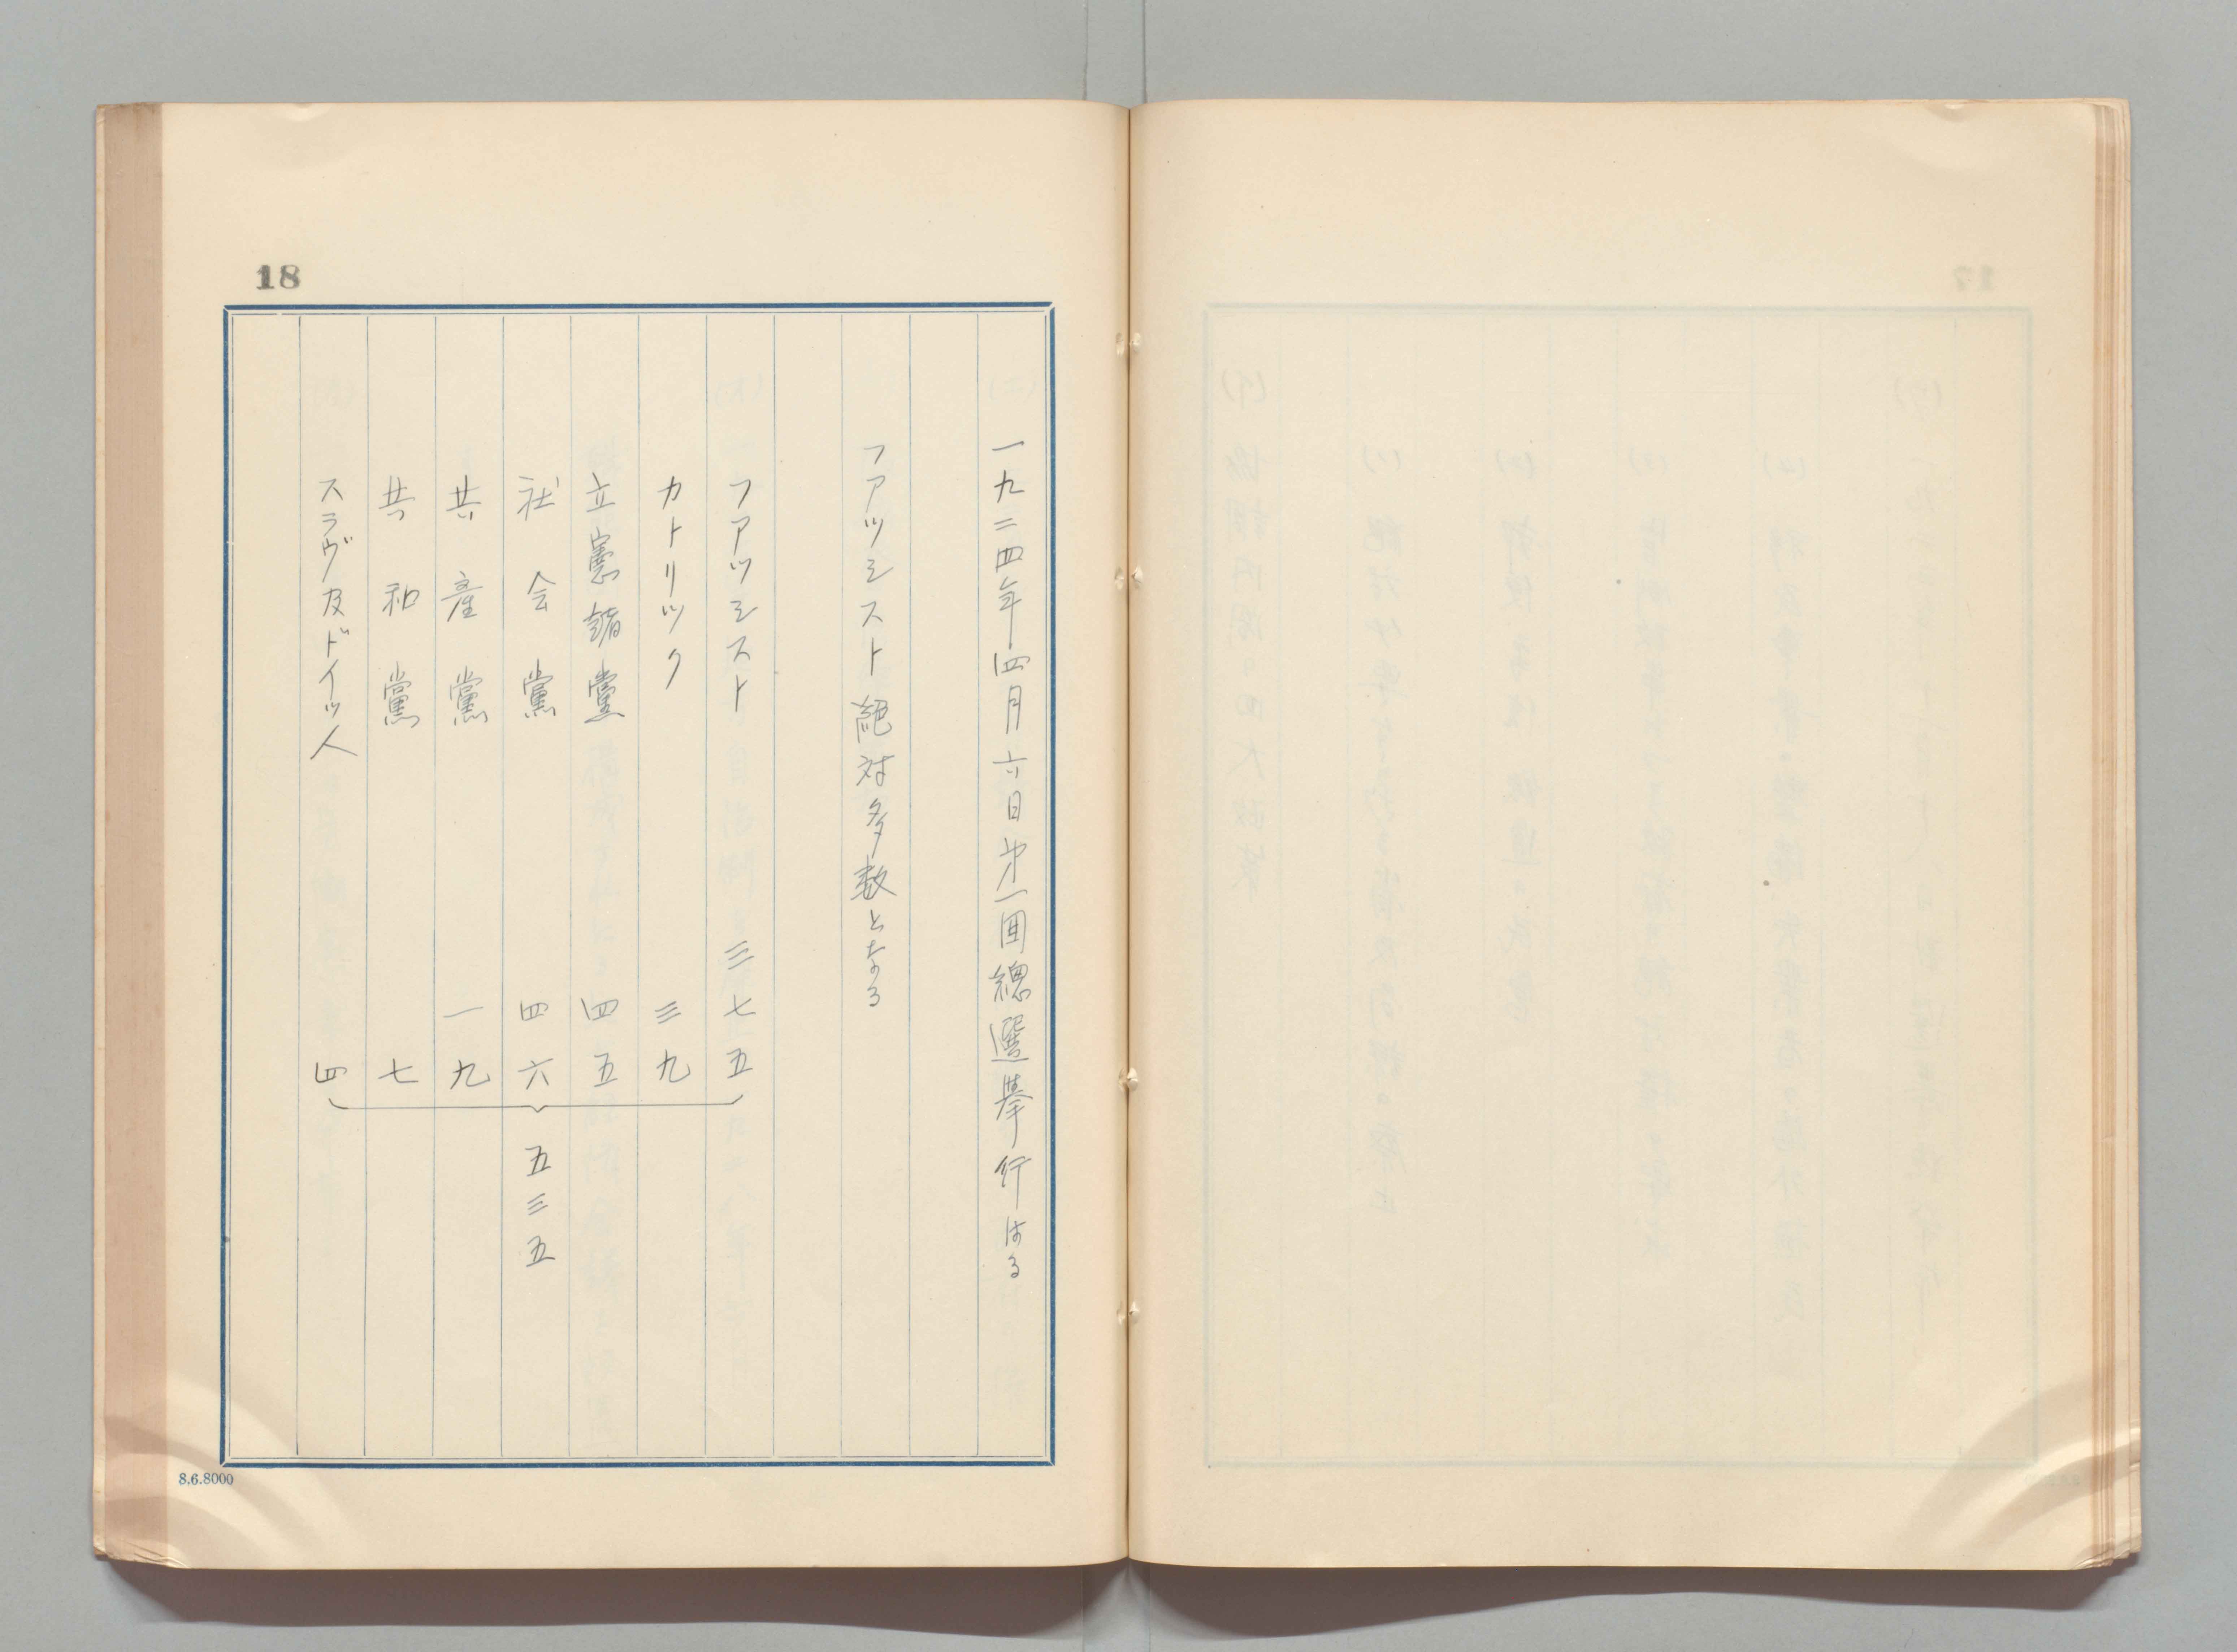 18
一九二四年四月六日第一回總選挙行はる
フアツシスト絶対多数となる
フアツシスト 三七五
カトリツク 三九
立憲諸黨 四五
社会黨 四六
共産黨 一九
共和黨 七
スラヴ及ドイツ人 四
五三五
8.6.8000